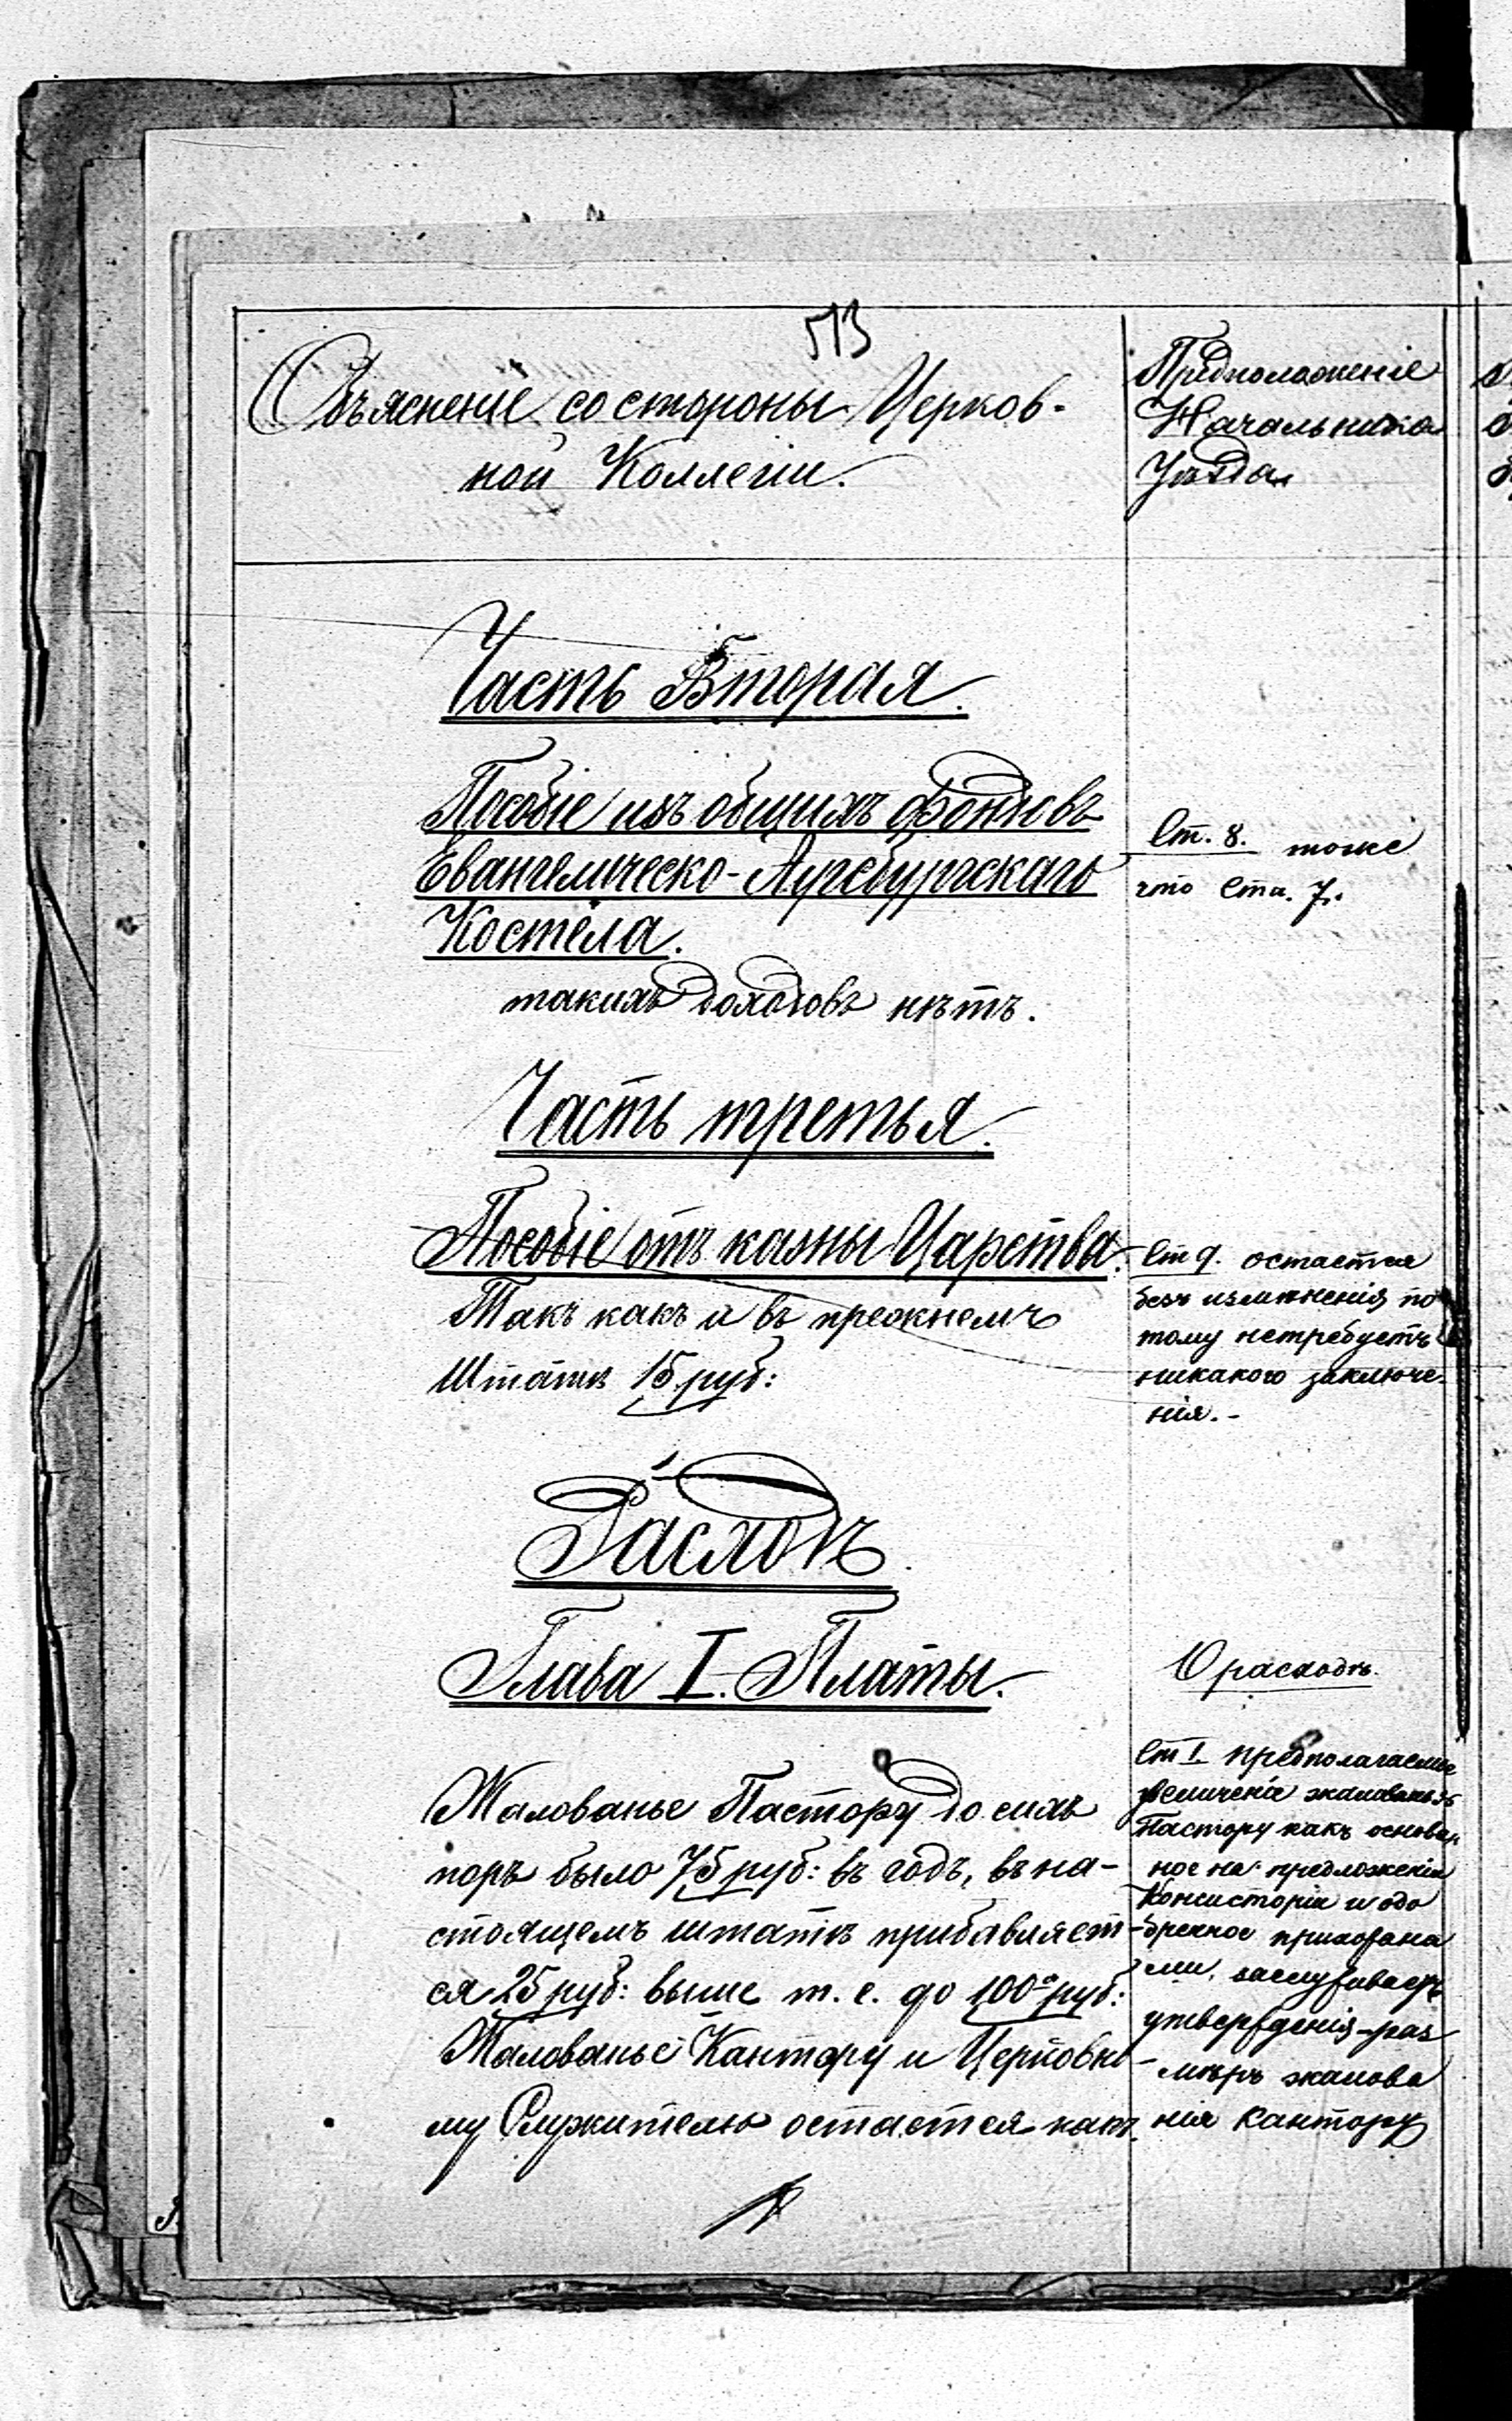 513
Объясненіе со стороны Церков-
ной Коллегіи.
Предположеніе
Начальника
Уѣзда
Часть Вторая.
Пособіе изъ общихъ фондовъ
Евангелическо-Аугсбургскаго
Костела.
такихъ доходовъ нѣтъ.
Ст. 8. тоже
что Ста. 7.
Часть третья.
Пособіе отъ казны Царства.
Такъ какъ и въ прежнемъ
Штатѣ 15 руб:
Ст 9. остается
безъ измѣненія по
тому нетребуетъ
никакого заключе-
нія.-
Расходъ.
Глава I. Платы.
Жалованье Пастору до сихъ
поръ было 75 руб: въ годъ, въ на-
стоящемъ штатѣ прибавляет-
ся 25 руб: выше т. е. до 100 руб:
Жалованье Кантору и Церковно-
му Служителю остается какъ
О расходѣ.
Ст I. предполагаемое
увеличеніе жалованья
Пастору какъ основан
ное на предложеніи
Консисторіи и одо
бренное прихожана
ми, заслуживаетъ
утвержденія-раз
мѣръ жалова
нія кантору